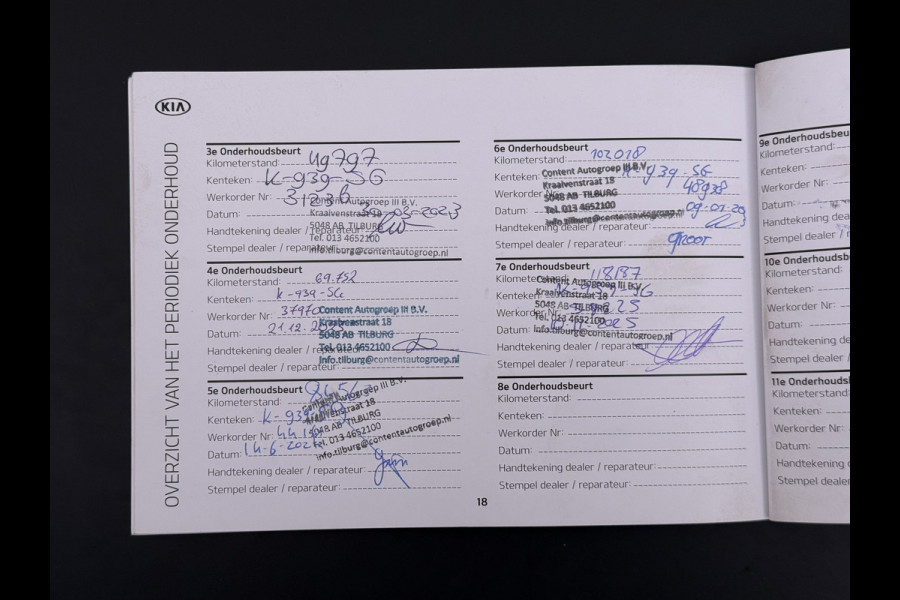 KIA
OVERZICHT VAN HET PERIODIEK ONDERHOUD
3e Onderhoudsbeurt
Kilometerstand: 49797
Kenteken: K-939-SG
Werkorder Nr:
Content Autogroep III B.V.
Kraalvenstraat 18
Datum: 03-2023
5048 AB TILBURG
Handtekening dealer / reparateur:
Tel. 013 4652100
Stempel dealer / reparateur:
info.tilburg@contentautogroep.nl
4e Onderhoudsbeurt
Kilometerstand: 69.752
Kenteken: K-939-SG
Werkorder Nr: 37970
Content Autogroep III B.V.
Kraalvenstraat 18
Datum: 21.12.
5048 AB TILBURG
Handtekening dealer / reparateur:
Tel. 013 4652100
Stempel dealer / reparateur:
info.tilburg@contentautogroep.nl
5e Onderhoudsbeurt
Kilometerstand:
Autogroep III B.V.
Kenteken: K-939
Kraalvenstraat 18
Werkorder Nr:
5048 AB TILBURG
Datum: 14-6-202
Tel. 013 4652100
info.tilburg@contentautogroep.nl
Handtekening dealer / reparateur:
Stempel dealer / reparateur:
6e Onderhoudsbeurt
Kilometerstand: 102018
Kenteken: K-939-SG
Content Autogroep III B.V.
Kraalvenstraat 18
Werkorder Nr:
5048 AB TILBURG
Datum: 09-01-20
Tel. 013 4652100
info.tilburg@contentautogroep.nl
Handtekening dealer / reparateur:
Stempel dealer / reparateur: groot
7e Onderhoudsbeurt
Kilometerstand: 118187
Kenteken:
Content Autogroep III B.V.
Kraalvenstraat 18
Werkorder Nr:
5048 AB TILBURG
Datum: 2025
Tel. 013 4652100
info.tilburg@contentautogroep.nl
Handtekening dealer / reparateur:
Stempel dealer / reparateur:
8e Onderhoudsbeurt
Kilometerstand:
Kenteken:
Werkorder Nr:
Datum:
Handtekening dealer / reparateur:
Stempel dealer / reparateur:
18
9e Onderhoudsbeu
Kilometerstand:
Kenteken:
Werkorder Nr:
Datum:
Handtekening dea
Stempel dealer / r
10e Onderhoudsb
Kilometerstand:
Kenteken:
Werkorder Nr:
Datum:
Handtekening de
Stempel dealer /
11e Onderhouds
Kilometerstand:
Kenteken:
Werkorder Nr:
Datum:
Handtekening
Stempel deale